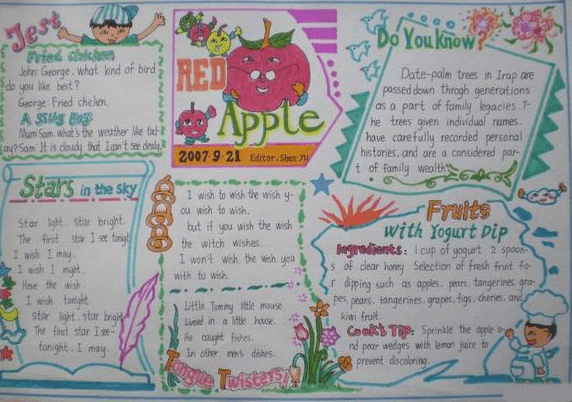 Jest
Fried Chicken
John: George, what kind of bird
do you like best?
George: Fried chiclen.
A Silly Boy
Mum: Sam, what's the weather like tod-
ay? Sam: It is cloudy that I can't see
RED
Apple
2007.9.21 Editor: Shen
Do You know?
Date-palm trees in Irap are
passed down throgh generations
as a part of family legacies. T-
he trees given individual names.
have carefully recorded personal
histories, and are a considered par-
t of family wealth.
Stars in the sky
Star light. Star bright.
The first star I see tongt
I wish I may.
I wish I might.
Have the wish.
I wish tonight.
Star light. Star bright
The first star I see
tonight. I may.
I wish to wish the wish y-
ou wish to wish.
but if you wish the wish
the witch wishes.
I won't wish the wish you
with to wish.
Little Tommy little mouse
Liveed in a little house.
He caught fishes.
In other men's dishes.
Tongue Twisters!
Fruits
with Yogurt Dip
Ingredients: 1 cup of yogurt 2 spoon-
s of clear honey Selection of fresh fruit fo-
r dipping such as apples. pears. tangerines, gra-
pes, pears, tangerines, grapes, figs, cheries, and
kiwi fruit.
Cook's Tip: Sprinkle the apple a-
nd pear wedges with lemon juice to
prevent discoloring.